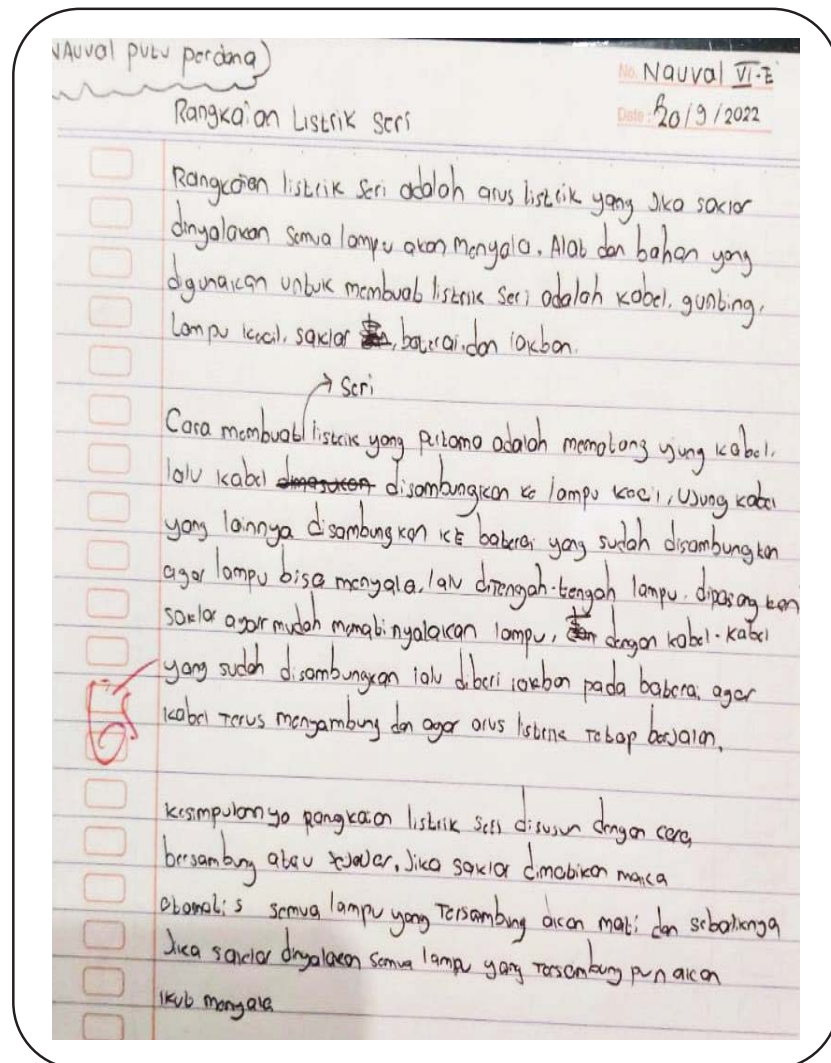 (Nauval putu perdana)
No. Nauval VI-E
Date: 20/9/2022
Rangkaian Listrik Seri
Rangkaian listrik Seri adalah arus listrik yang Jika saklar
dinyalakan semua lampu akan menyala. Alat dan bahan yang
digunakan untuk membuat listrik Seri adalah kabel, gunting,
Lampu kecil, saklar, baterai, dan lakban.
Seri
Cara membuat listrik yang pertama adalah memotong ujung kabel,
lalu kabel dimasukan disambungkan ke lampu kecil, Ujung kabel
yang lainnya disambungkan ke baterai yang sudah disambungkan
agar lampu bisa menyala, lalu ditengah-tengah lampu, dipasangkan
saklar agar mudah mematinyalakan lampu, dengan kabel-kabel
yang sudah disambungkan lalu diberi lakban pada baterai agar
kabel terus menyambung dan agar arus listrik tetap berjalan.
kesimpulannya rangkaian listrik seri disusun dengan cara
bersambung atau sejajar, Jika saklar dimatikan maka
otomatis semua lampu yang Tersambung akan mati dan sebaliknya
Jika saklar dinyalakan semua lampu yang tersambung pun akan
ikut menyala